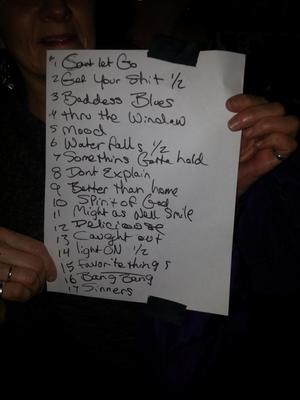 1 Cant let Go
2 Get Your Shit 1/2
3 Baddess Blues
4 thru the Window
5 Mood
6 Waterfalls 1/2
7 Something Gotta hold
8 Dont Explain
9 Better than home
10 Spirit of God
11 Might as Well Smile
12 Delicious
13 Caught out
14 light ON 1/2
15 favorite things
16 Bang Bang
17 Sinners